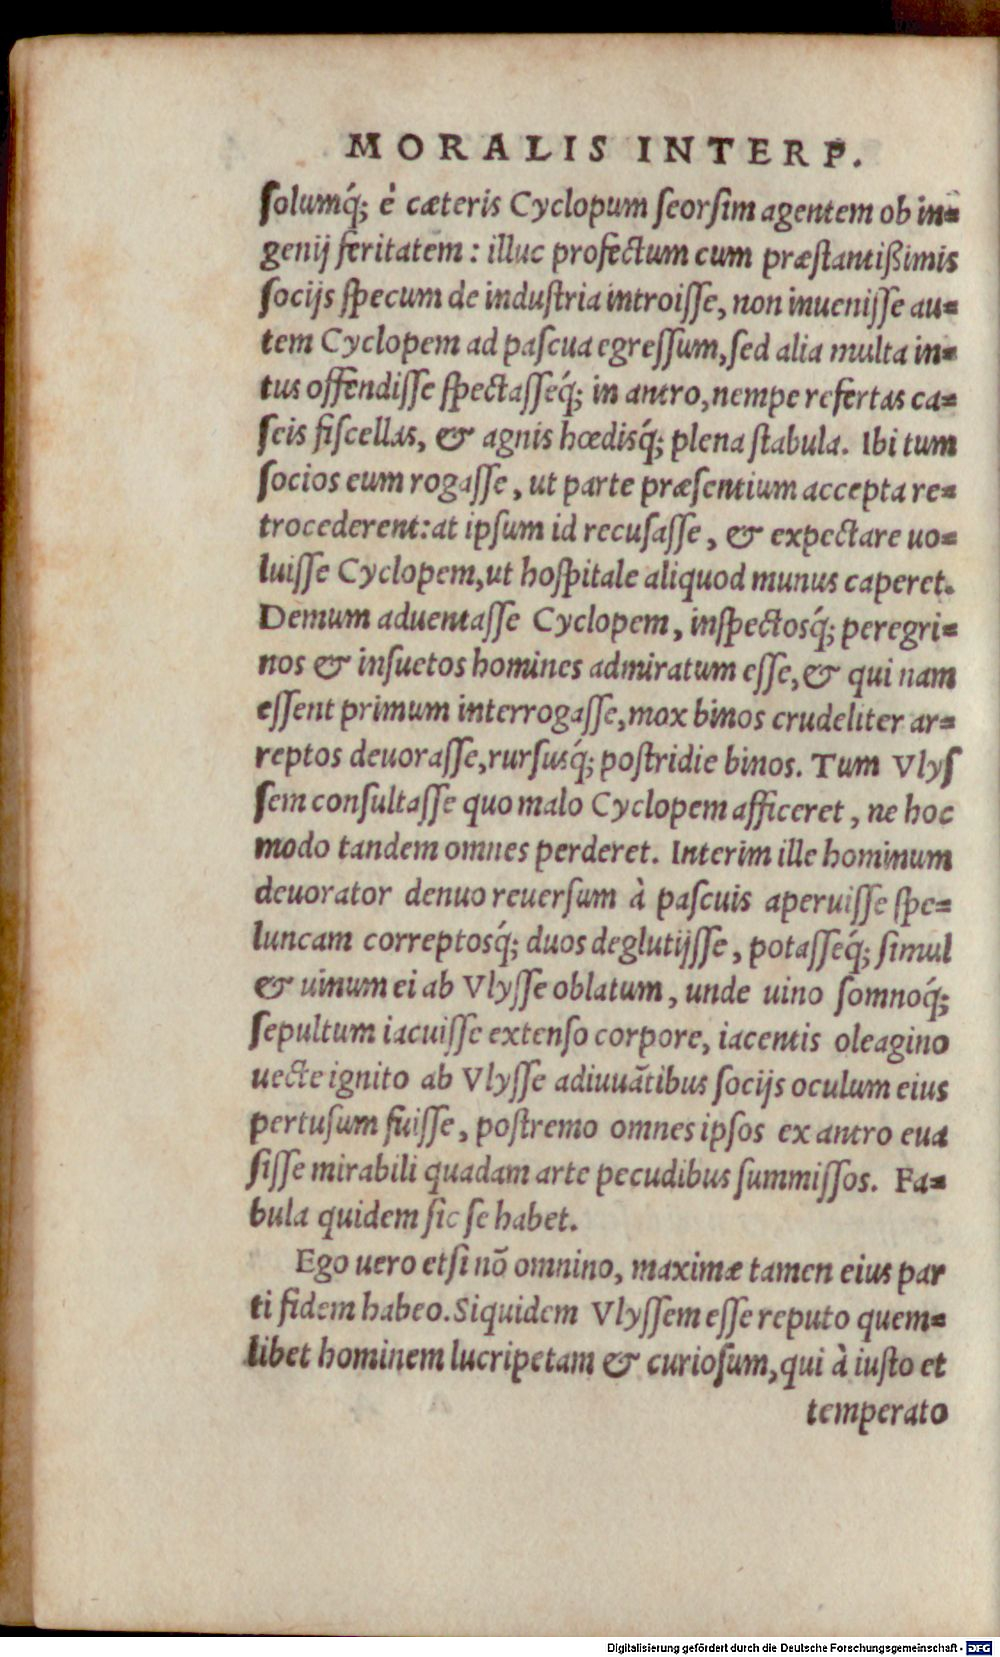 MORALIS INTERP.
ſolumq́; è cæteris Cyclopum ſeorſim agentem ob in=
genij feritatem : illuc profectum cum præſtantißimis
ſocijs ſpecum de induſtria introiſſe, non inueniſſe au=
tem Cyclopem ad paſcua egreſſum, ſed alia multa in=
tus offendiſſe ſpectaſſeq́; in antro, nempe refertas ca=
ſeis fiſcellas, & agnis hœdisq́; plena ſtabula. Ibi tum
ſocios eum rogaſſe, ut parte præſentium accepta re=
trocederent: at ipſum id recuſaſſe, & expectare uo=
luiſſe Cyclopem, ut hoſpitale aliquod munus caperet.
Demum aduentaſſe Cyclopem, inſpectosq́; peregri=
nos & inſuetos homines admiratum eſſe, & qui nam
eſſent primum interrogaſſe, mox binos crudeliter ar=
reptos deuoraſſe, rurſusq́; poſtridie binos. Tum Vlyſ
ſem conſultaſſe quo malo Cyclopem afficeret, ne hoc
modo tandem omnes perderet. Interim ille hominum
deuorator denuo reuerſum à paſcuis aperuiſſe ſpe=
luncam correptosq́; duos deglutijſſe, potaſſeq́; ſimul
& uinum ei ab Vlyſſe oblatum, unde uino ſomnoq́;
ſepultum iacuiſſe extenſo corpore, iacentis oleagino
uecte ignito ab Vlyſſe adiuuãtibus ſocijs oculum eius
pertuſum fuiſſe, poſtremo omnes ipſos ex antro eua
ſiſſe mirabili quadam arte pecudibus ſummiſſos. Fa=
bula quidem ſic ſe habet.
Ego uero etſi nõ omnino, maximæ tamen eius par
ti fidem habeo. Siquidem Vlyſſem eſſe reputo quem=
libet hominem lucripetam & curioſum, qui à iuſto et
temperato
Digitalisierung gefördert durch die Deutsche Forschungsgemeinschaft - DFG